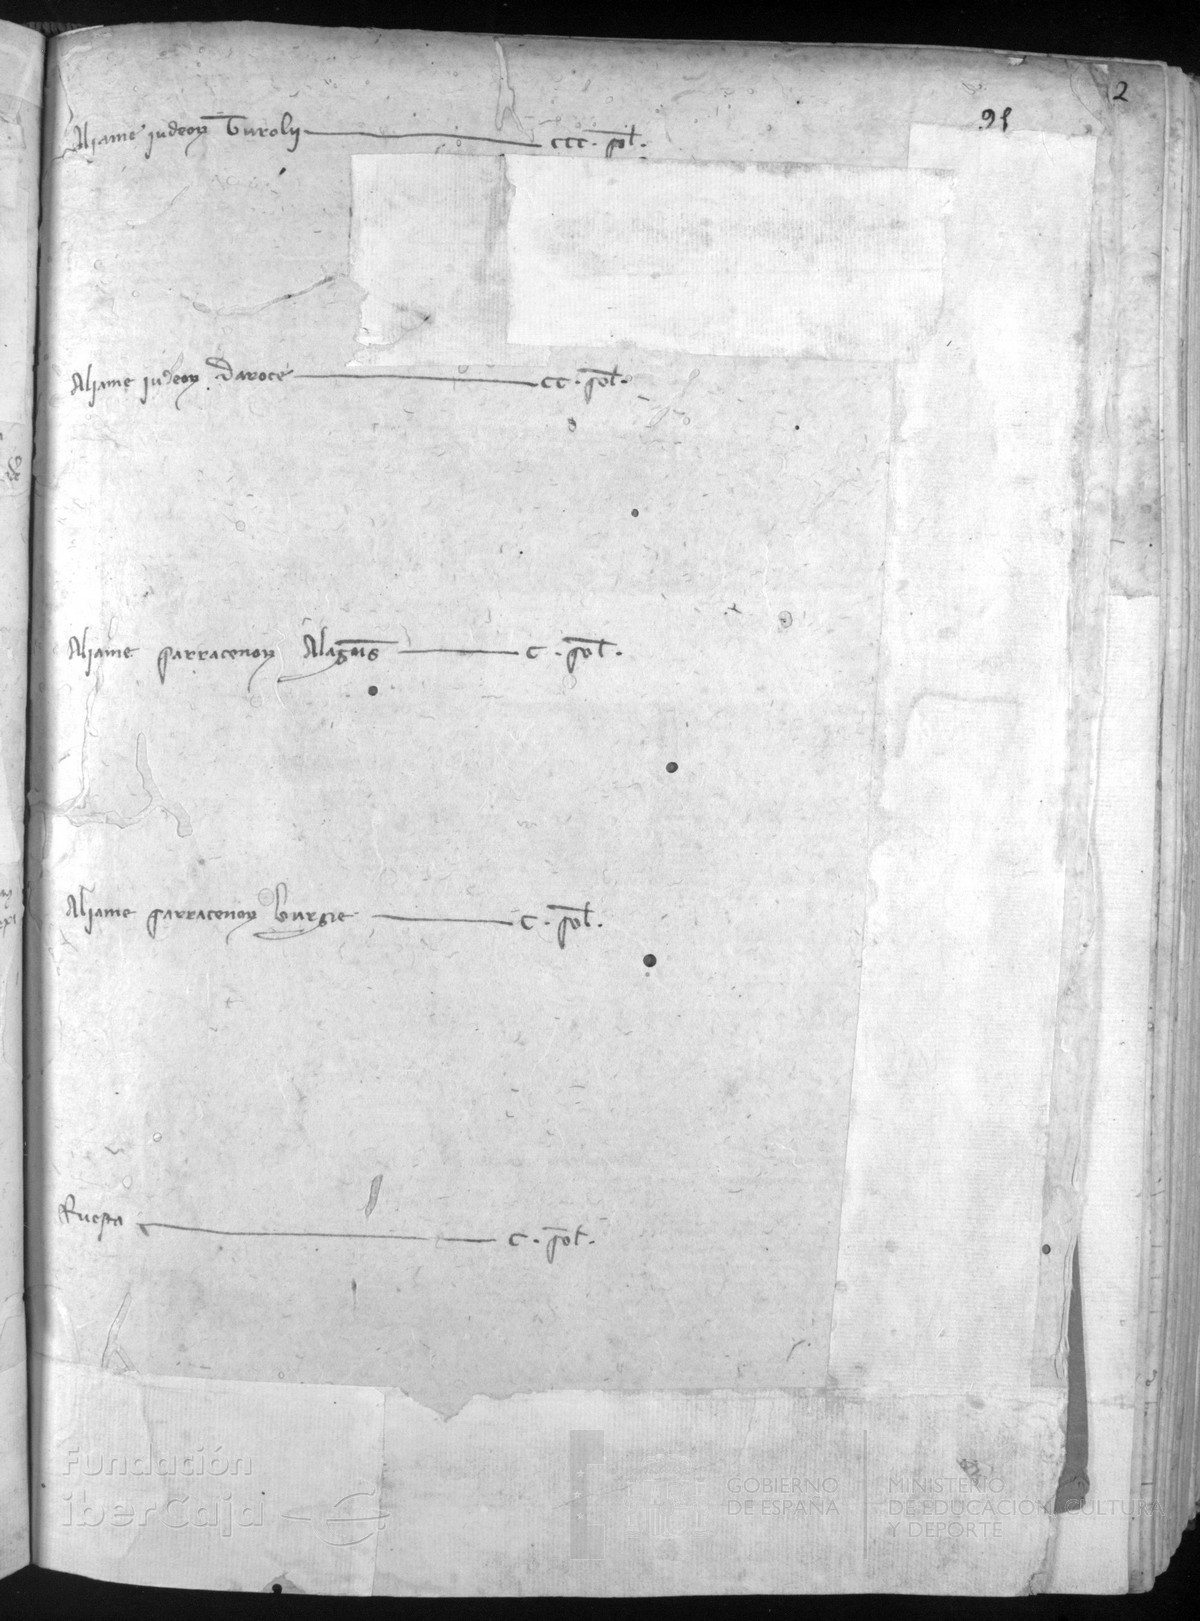 2
91
Aliame iudeoꝝ Turolij ccc. sol.
Aliame iudeoꝝ Daroce cc. sol.
Aliame sarracenoꝝ c. sol.
Aliame sarracenoꝝ burgie c. sol.
Ruesta c. sol.
Fundación
iberCaja
GOBIERNO
DE ESPAÑA
MINISTERIO
DE EDUCACION, CULTURA
Y DEPORTE